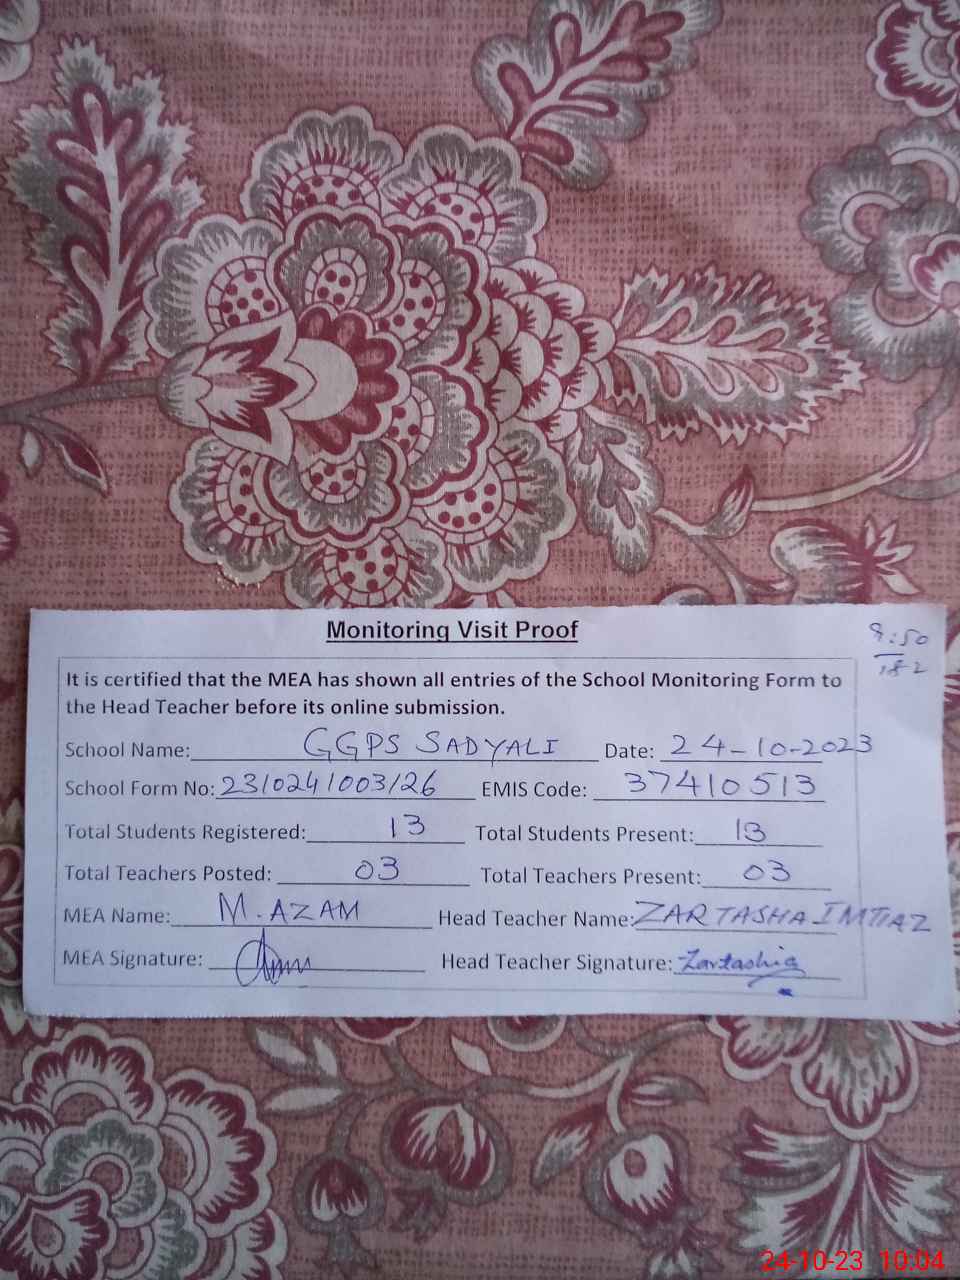 Monitoring Visit Proof
8:50
182
It is certified that the MEA has shown all entries of the School Monitoring Form to
the Head Teacher before its online submission.
School Name: GGPS SADYALI Date: 24-10-2023
School Form No: 2310241003126 EMIS Code: 37410513
Total Students Registered: 13 Total Students Present: 13
Total Teachers Posted: 03 Total Teachers Present: 03
MEA Name: M. AZAM Head Teacher Name: ZARTASHA IMTIAZ
MEA Signature: Head Teacher Signature: Zartashia
24-10-23 10:04